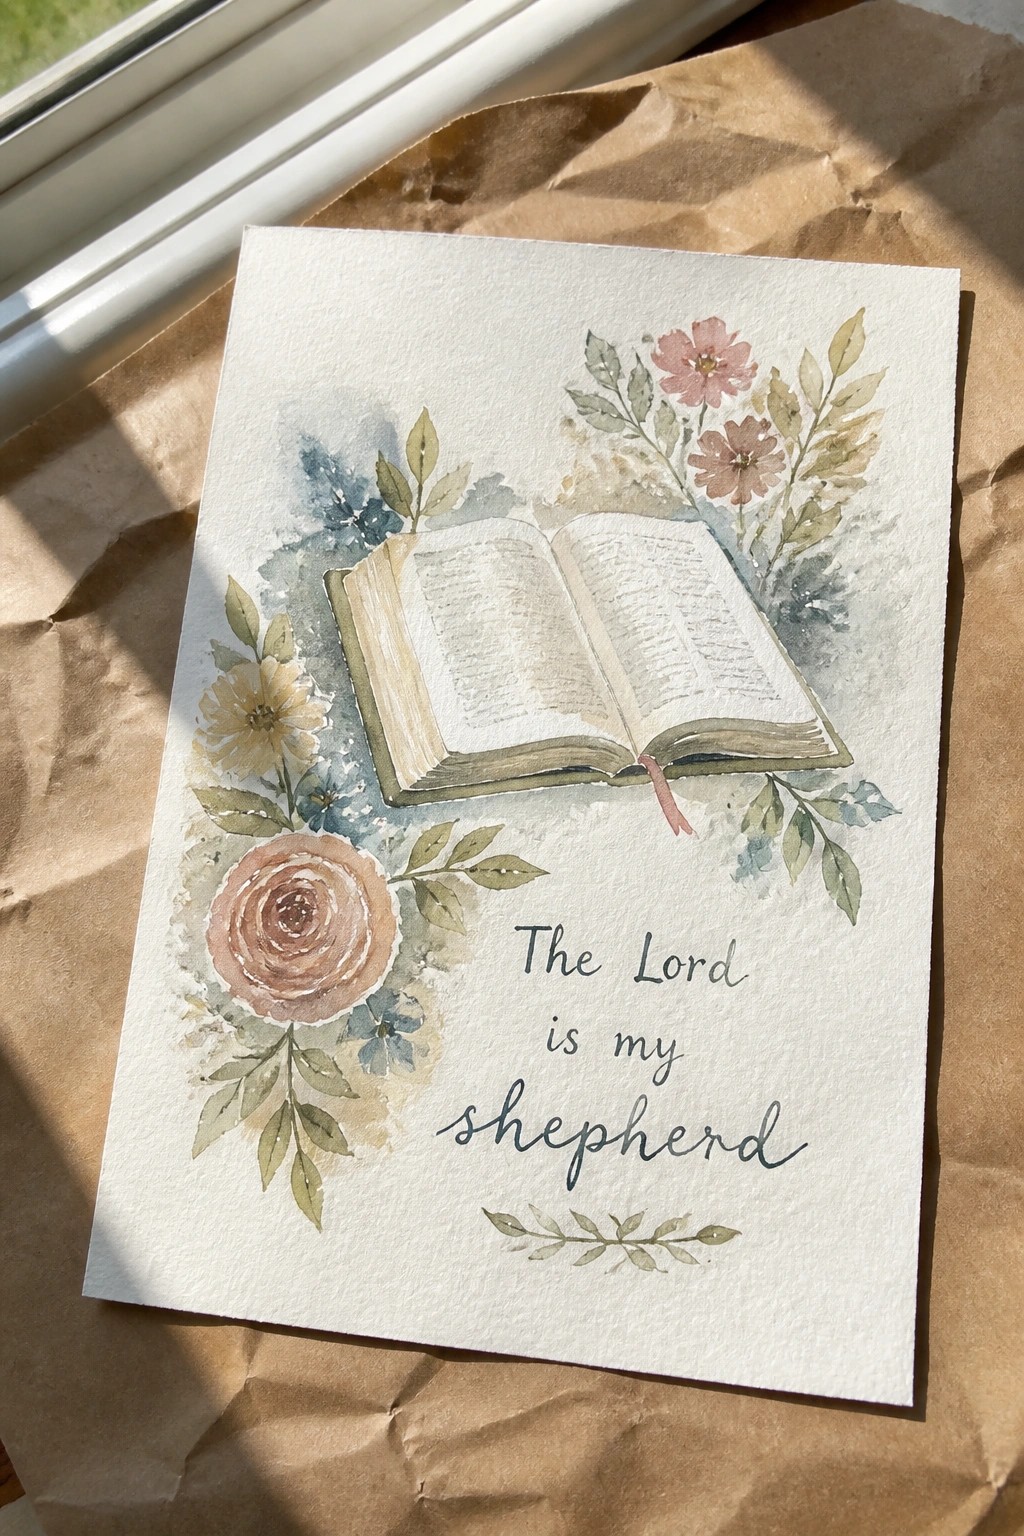 The Lord
is my
shepherd